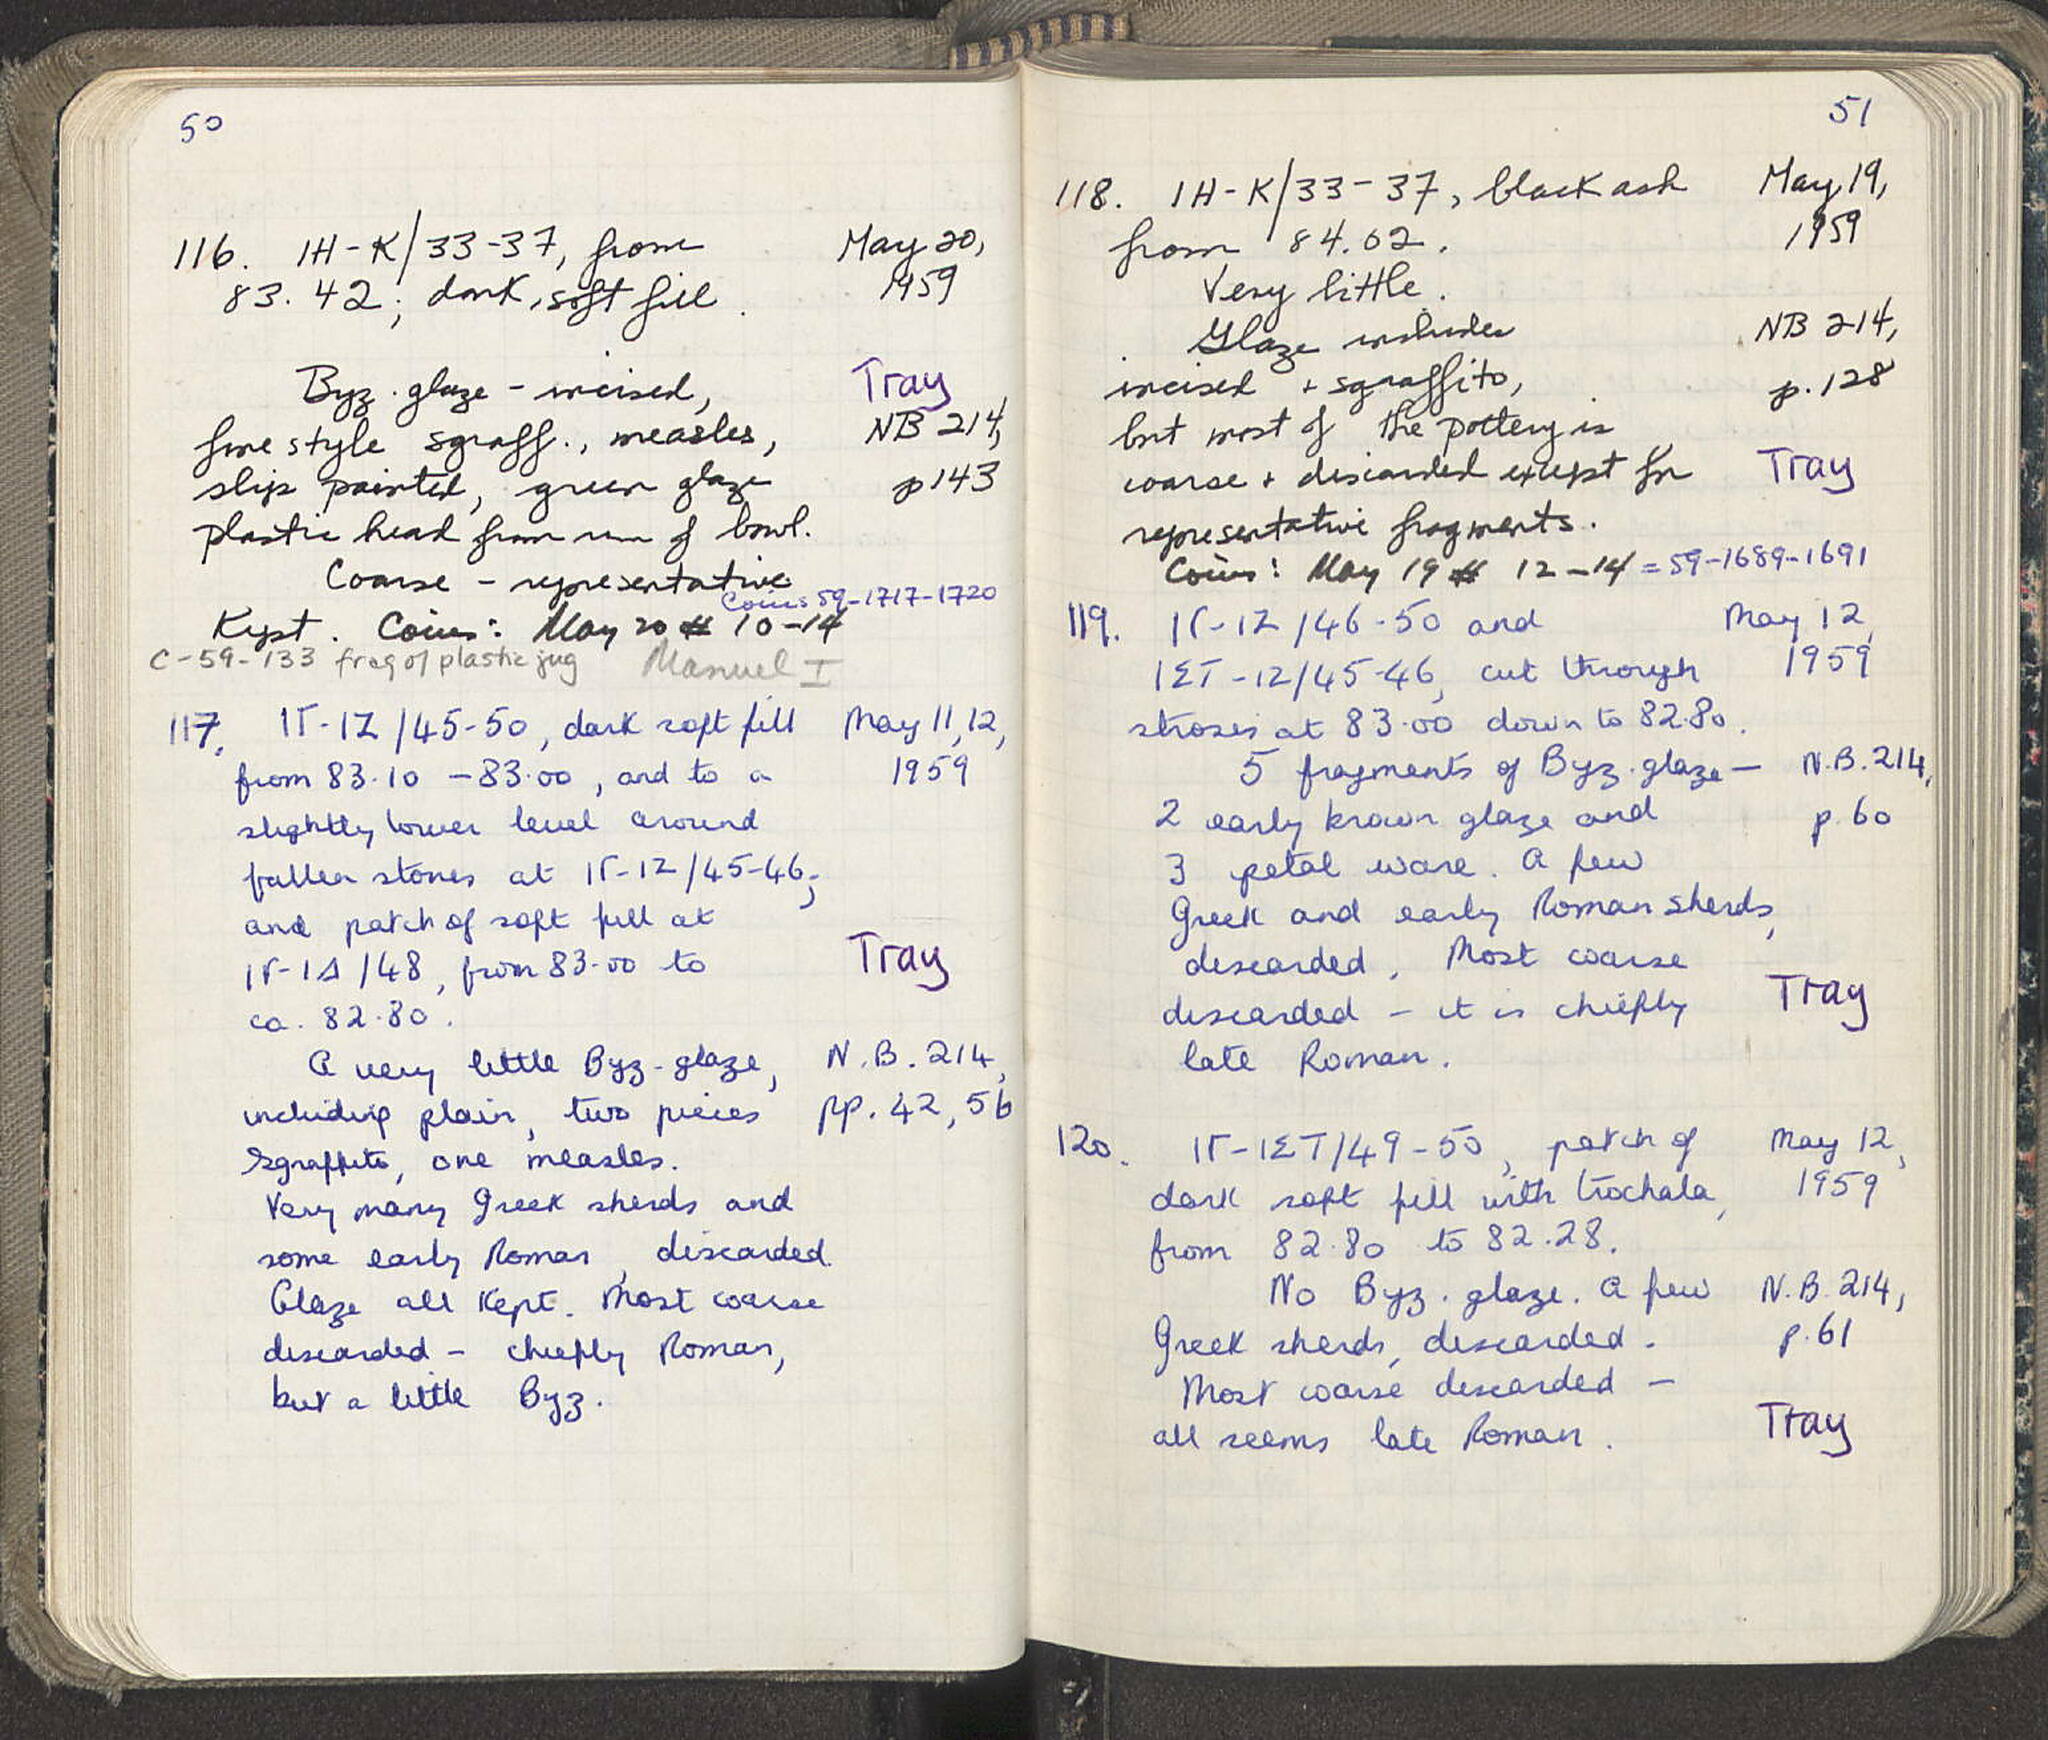 50
116. IH-K/33-37, from May 20,
83.42; dark, soft fill. 1959
Byz. glaze - incised, Tray
fine style sgraff., measles, NB 214,
slip painted, green glaze p 143
plastic head from rim of bowl.
Coarse - representative
Coins 59-1717-1720
Kept. Coins: May 20 # 10-14
C-59-133 frag of plastic jug Manuel I
117. IΓ-IZ/45-50, dark soft fill May 11, 12,
from 83.10 - 83.00, and to a 1959
slightly lower level around
fallen stones at IΓ-IZ/45-46;
and patch of soft fill at
IΓ-IΔ/48, from 83.00 to Tray
ca. 82.80.
A very little Byz. glaze, N.B. 214,
including plain, two pieces pp. 42, 56
sgraffito, one measles.
Very many Greek sherds and
some early Roman, discarded.
Glaze all kept. Most coarse
discarded - chiefly Roman,
but a little Byz.
51
118. IH-K/33-37, black ash May 19,
from 84.02. 1959
Very little.
Glaze includes NB 214,
incised + sgraffito, p. 128
but most of the pottery is
coarse + discarded except for Tray
representative fragments.
Coins: May 19 # 12-14 = 59-1689-1691
119. IΓ-IZ/46-50 and May 12,
IΣΤ-IZ/45-46, cut through 1959
stroses at 83.00 down to 82.80.
5 fragments of Byz. glaze - N.B. 214,
2 early brown glaze and p. 60
3 petal ware. A few
Greek and early Roman sherds,
discarded. Most coarse
discarded - it is chiefly Tray
late Roman.
120. IΓ-IΣΤ/49-50, patch of May 12,
dark soft fill with trochala, 1959
from 82.80 to 82.28.
No Byz. glaze. A few N.B. 214,
Greek sherds, discarded. p. 61
Most coarse discarded -
all seems late Roman. Tray